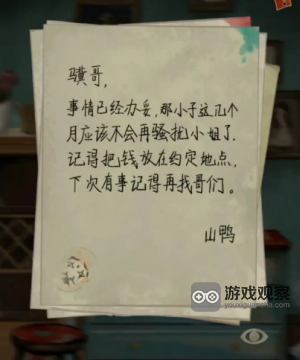 骥哥,
事情已经办妥,那小子这几个
月应该不会再骚扰小姐了.
记得把钱放在约定地点,
下次有事记得再找哥们。
山鸭
游戏观察
youxiguancha.com